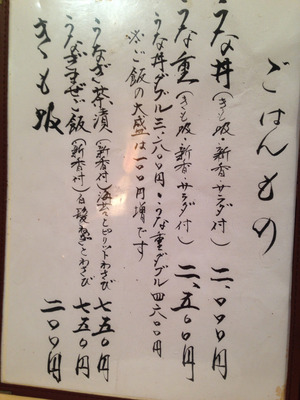 ごはんもの
うな丼(きも吸・新香・サラダ付) 二、〇〇〇円
うな重(きも吸・新香・サラダ付) 二、五〇〇円
うな丼ダブル三、六〇〇円・うな重ダブル四、六〇〇円
※ご飯の大盛は一〇〇円増です
うなぎ茶漬(新香付)海苔とピリットわさび 七五〇円
うなぎまぜご飯(新香付)白髪ねぎとわさび 七五〇円
きも吸 二〇〇円